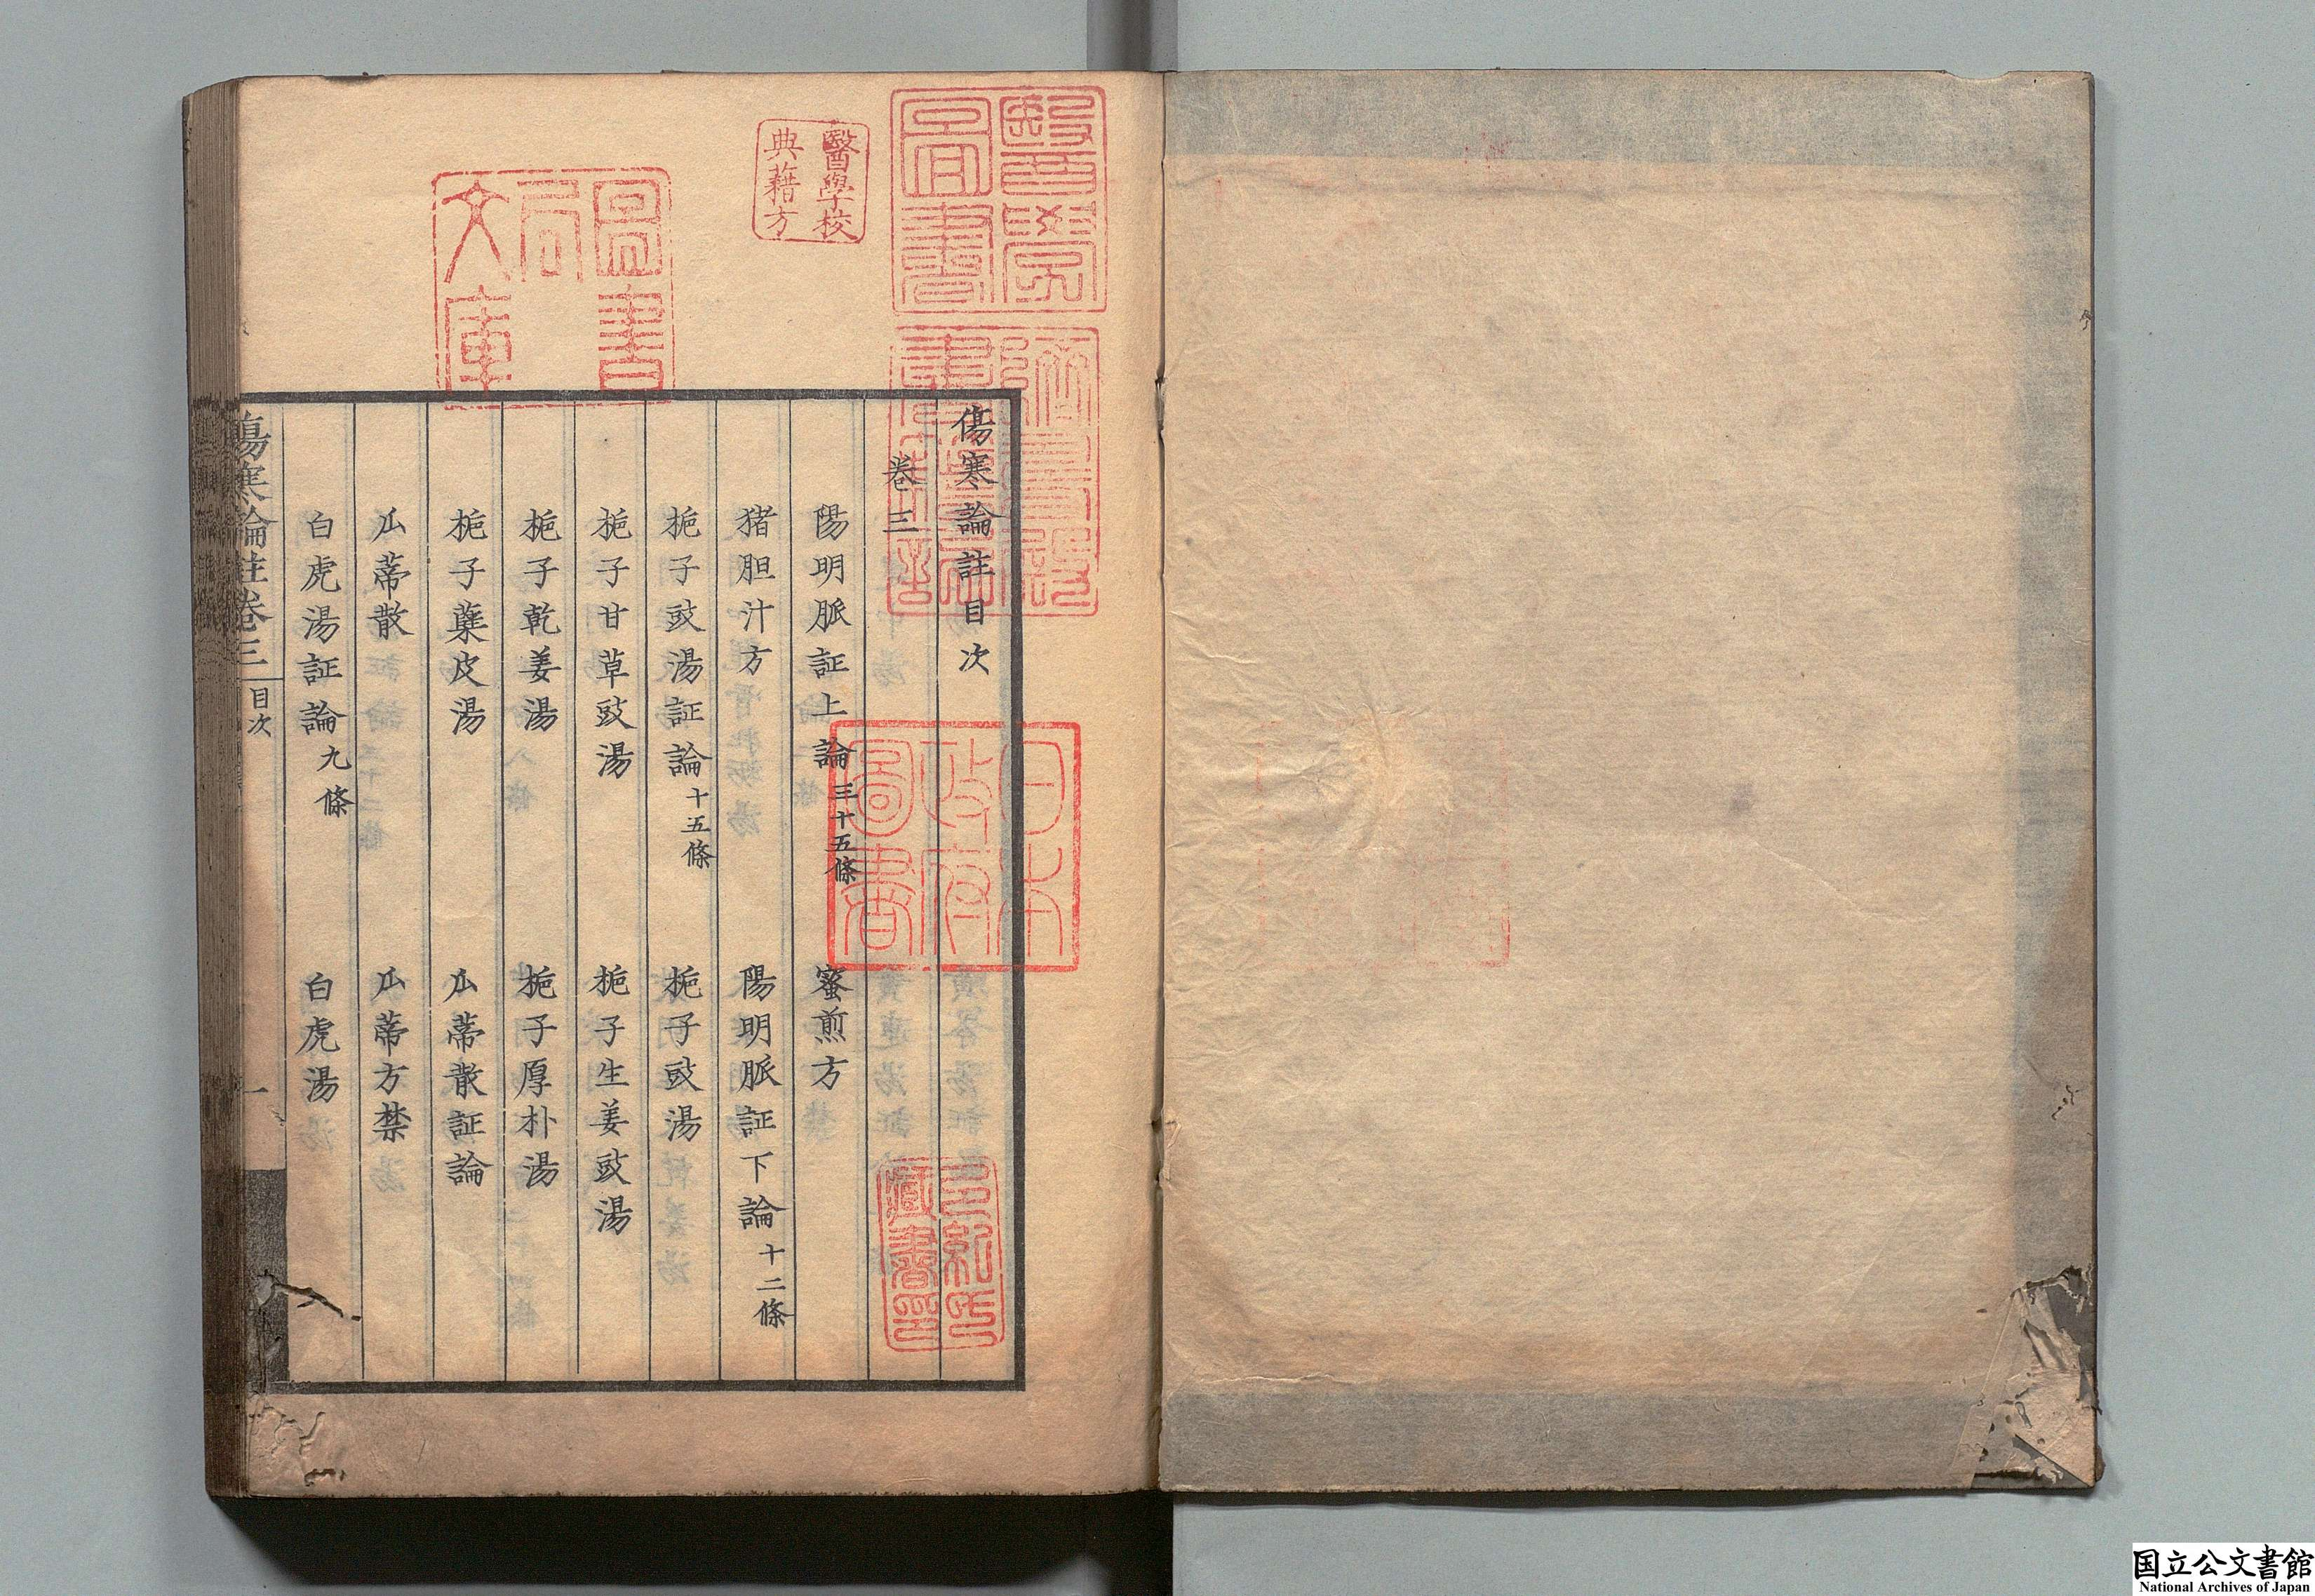 傷寒論註目次
卷三
陽明脈証上論三十五條　蜜煎方
猪胆汁方　陽明脈証下論十二條
梔子豉湯証論十五條　梔子豉湯
梔子甘草豉湯　梔子生姜豉湯
梔子乾姜湯　梔子厚朴湯
梔子蘗皮湯　瓜蒂散証論
瓜蒂散　瓜蒂方禁
白虎湯証論九條　白虎湯
傷寒論註卷三　目次　一
醫學校
典藉方
醫學
圖書
日本
政府
圖書
多紀氏
藏書印
国立公文書館
National Archives of Japan